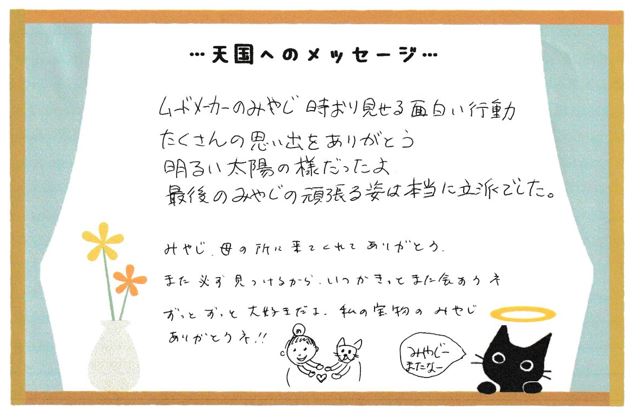 …天国へのメッセージ…
ムードメーカーのみやじ 時おり見せる面白い行動
たくさんの思い出をありがとう
明るい太陽の様だったよ
最後のみやじの頑張る姿は本当に立派でした。
みやじ、母の所に来てくれてありがとう、
また必ず見つけるから、いつかきっとまた会おうネ
ずっとずっと大好きだよ、私の宝物のみやじ
ありがとうネ!!
みやじー
またなー